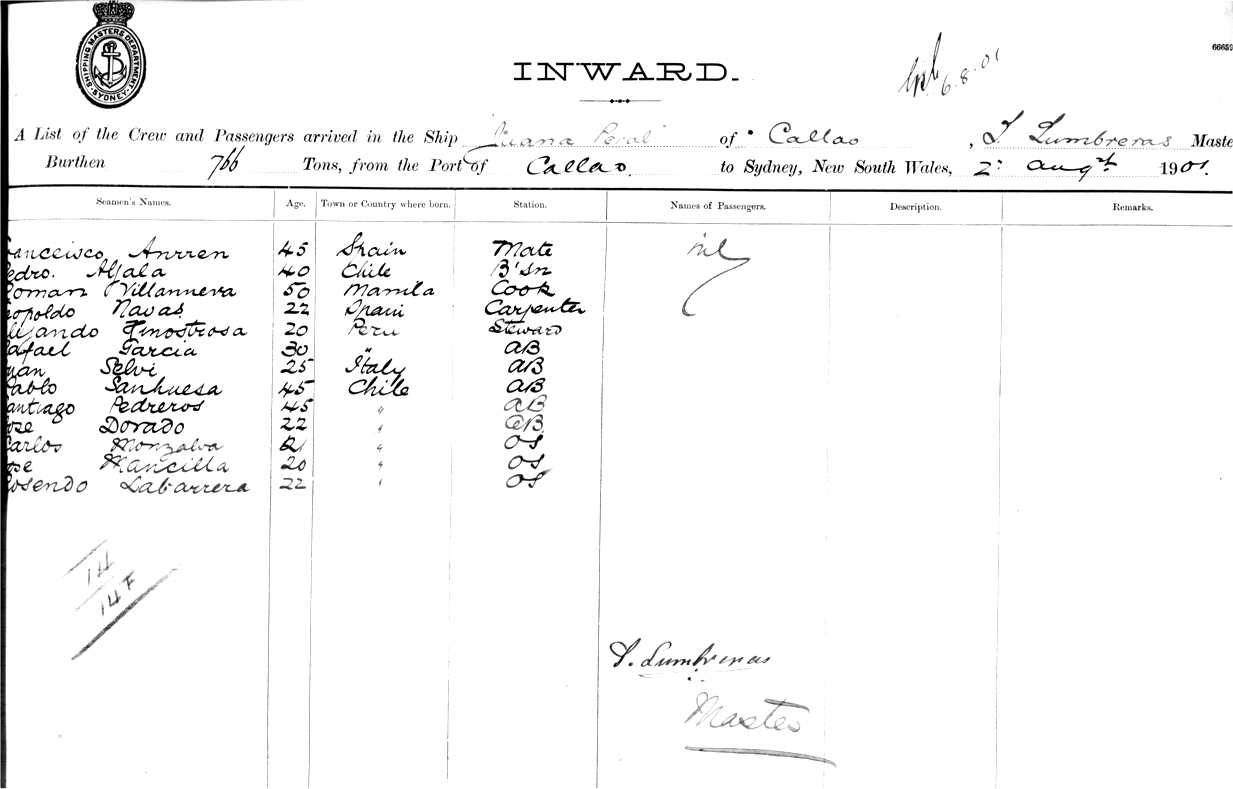 SHIPPING MASTERS DEPARTMENT SYDNEY
66659
INWARD.
6.8.01
A List of the Crew and Passengers arrived in the Ship Juana Peral of Callao, S Lumbreras Maste
Burthen 766 Tons, from the Port of Callao to Sydney, New South Wales, 2: Augst 1901.
Seamen's Names. Age. Town or Country where born. Station. Names of Passengers. Description. Remarks.
ranccisco Anrren 45 Spain Mate nil
edro. 40 Chile B'Sn
Roman Villanneva 50 Manila Cook
eopoldo Navas 22 Spain Carpenter
ljando Finostrosa 20 Peru Steward
afael Garcia 30 " AB
uan Selvi 25 Italy AB
Pablo Sanhuesa 45 Chile AB
antiago Pedreros 45 " AB
ose Dorado 22 " AB
Carlos Monzalva 21 " OS
ose Mancilla 20 " OS
Rosendo Labarrera 22 " OS
14
14 F
S. Lumbreras
Master